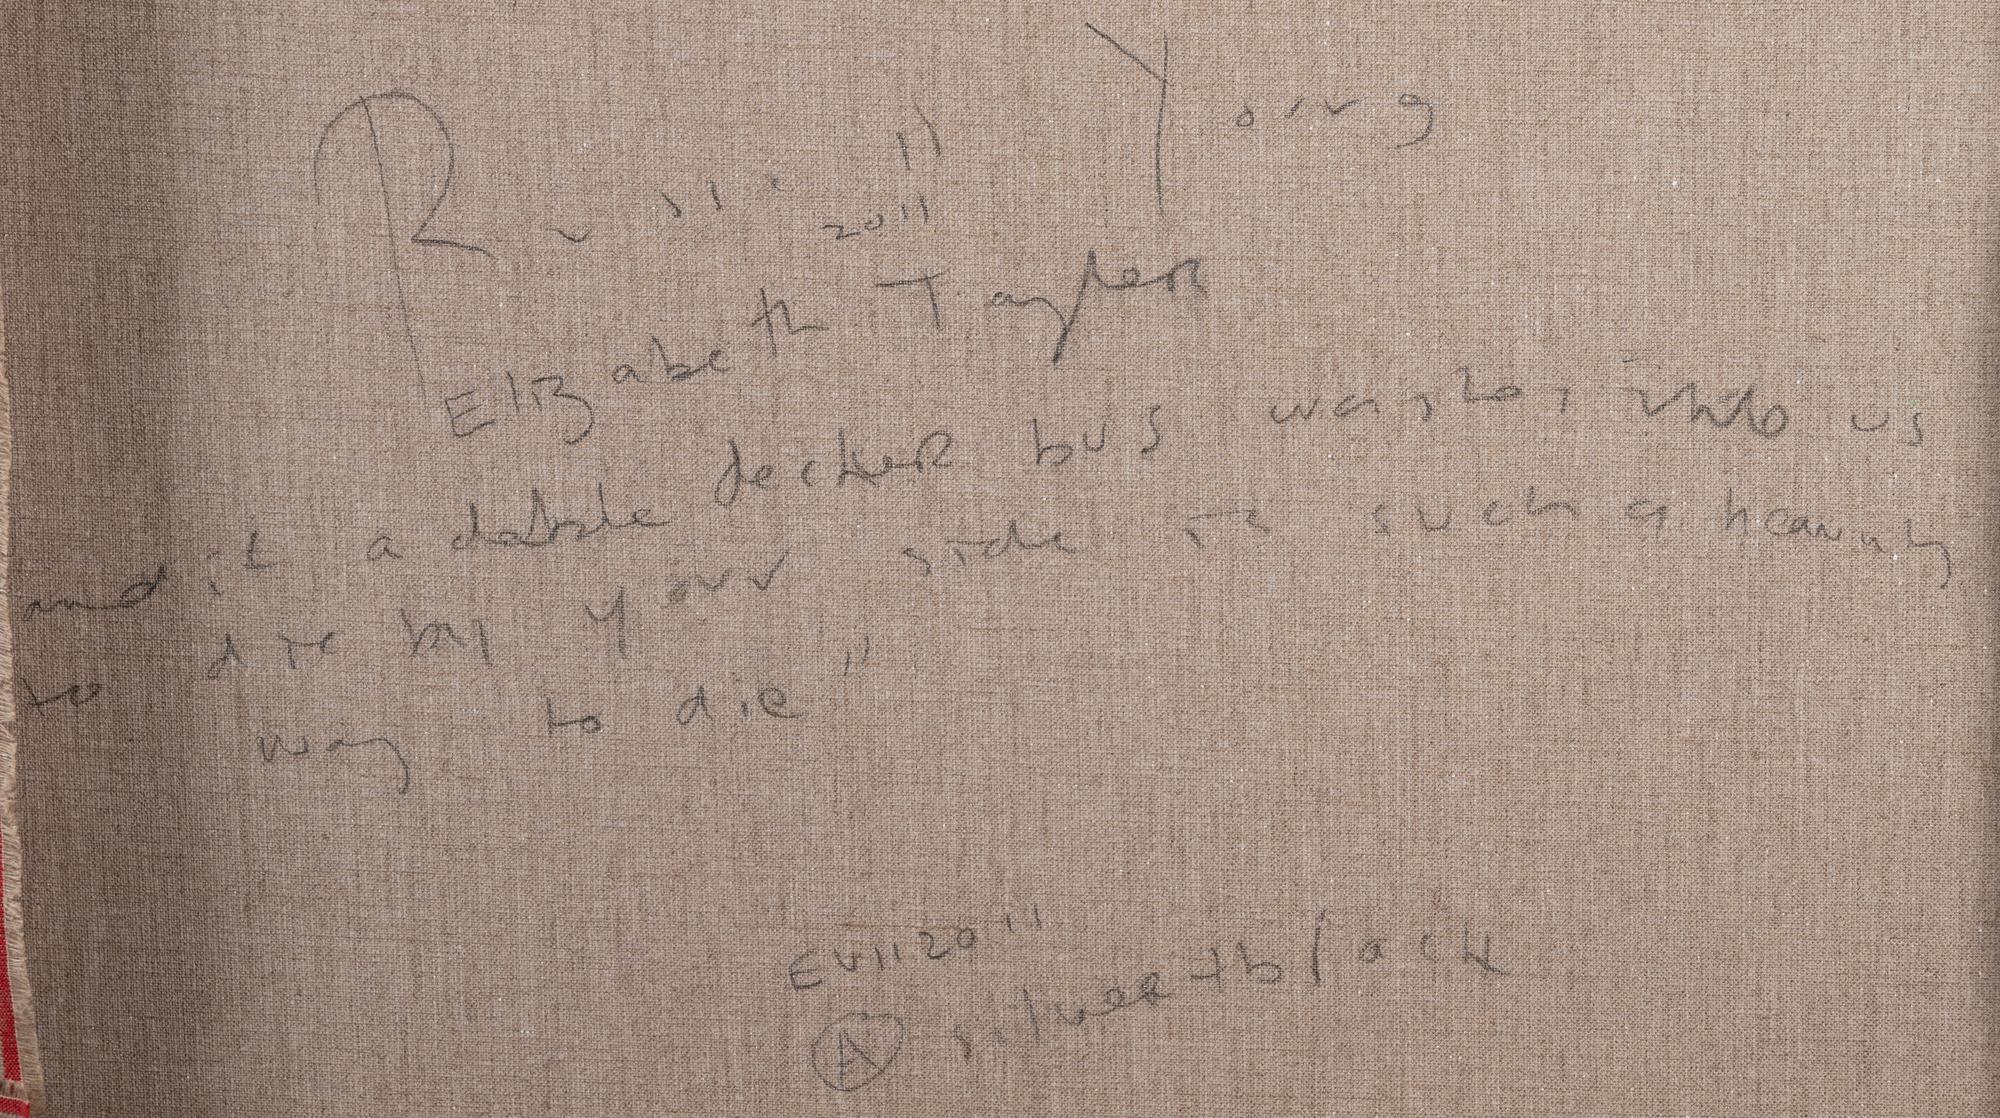 Russell Young
2011
Elizabeth Taylor
and if a dobble decker bus us
to die by your side is such a heavnly
way to die"
EV112011
A silver + black